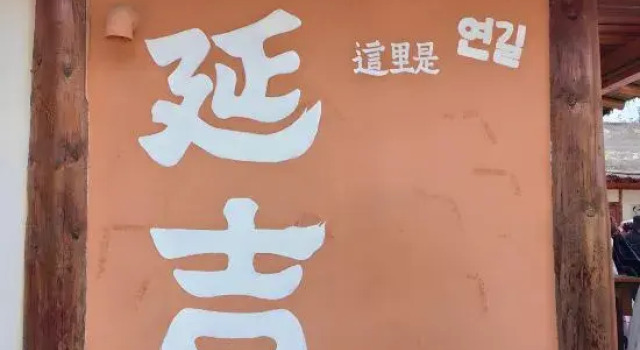 延吉
這里是 연길